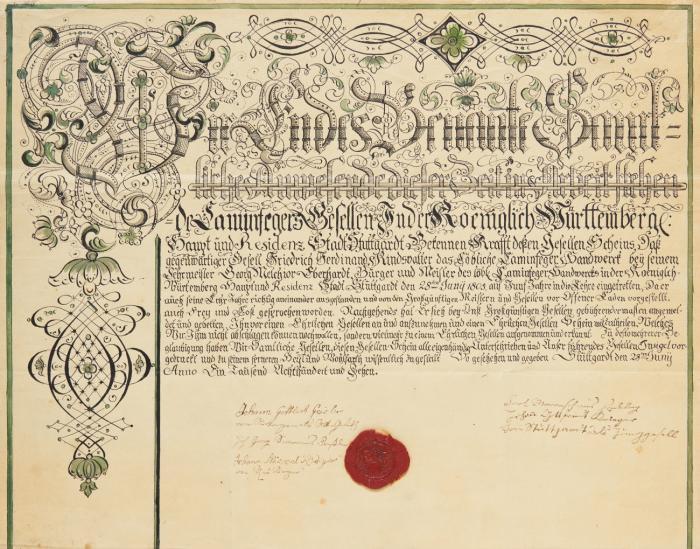 Wir Endes Benante Sämt=
liche anwesende dieser Zeit in Arbeit stehen
de Caminfegers Gesellen In der Koeniglich Württemberg.
Haupt und Residenz Stadt Stuttgardt Bekennen Krafft deßen Gesellen Scheins, Daß
gegenwärtiger Gesell Friedrich Ferdinand Kindsvatter das Löbliche Caminfeger Handwerck bey seinem
Lehrmeister Georg Melchior Eberhardt, Bürger und Meister des löbl. Caminfeger Handwercks in der Koeniglich
Würtemberg Haupt und Residenz Stadt Stuttgardt den 25ten Juny 1805 auf Fünf Jahr in die Lehre eingetretten, Da er
auch seine Lehr Jahre richtig aneinander ausgestanden und von den Großgünstigen Meistern und Gesellen vor Offener Laden vorgestellt,
auch Frey und Loß gesprochen worden. Nachgehends hat Er sich bey Uns Großgünstigen Gesellen, gebührendermaßen angemel=
det und gebetten, Ihn vor einen Ehrlichen Gesellen an und aufzunehmen und einen Ehrlichen Gesellen Schein mitzutheilen, Welches
Wir Ihm nicht abschlagen können noch wollen, sondern vielmehr zu einem Ehrlichen Gesellen aufgenommen und erkannt. Zu desto mehrerer Be=
glaubigung haben Wir Sämtliche Gesellen, diesen Gesellen Schein alle eigenhändig Unterschrieben und Unser führendes Gesellen Insigel vor=
gedruckt und zu seinem ferneren Heil und Wohlfarth wissentlich zugestellt. So geschehen und gegeben Stuttgardt den 25ten Juny
Anno Ein Tausend Achthundert und Zehen.
Johann Gottlieb
Johann
von Stuttgart